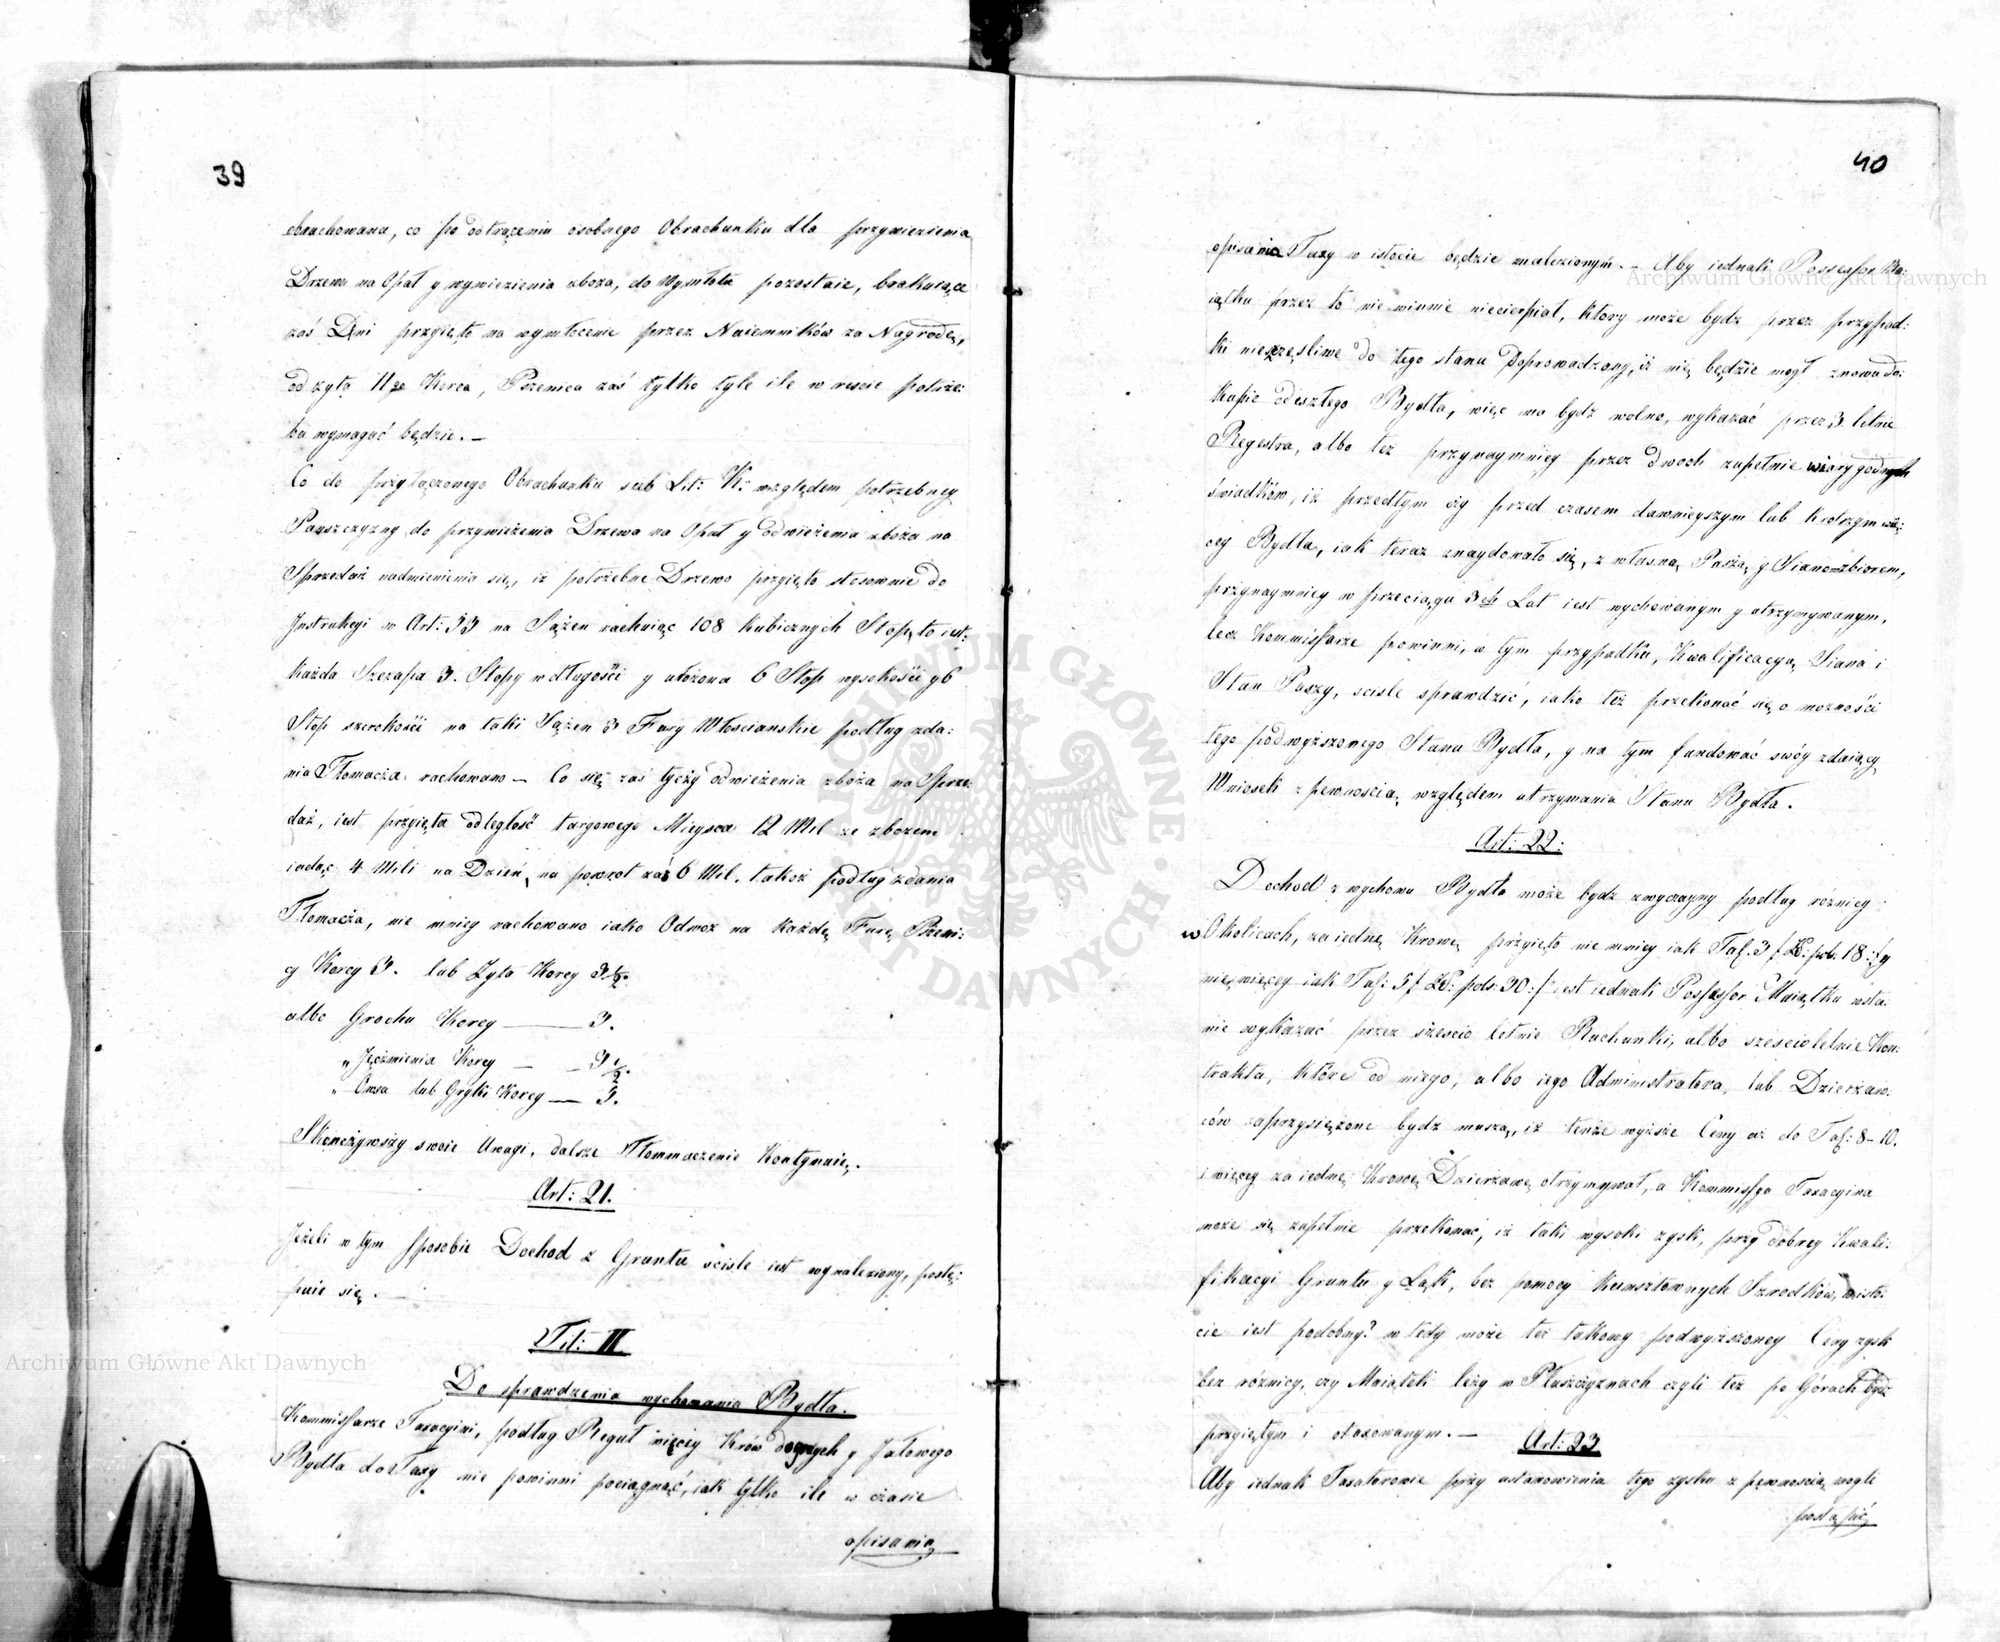 39
obrachowana, co po odtrąceniu osobnego Obrachunku dla przywiezienia
Drzewa na Opał y wywiezienia zboża, do Wymłotu pozostaie, brakuiące
zaś Dni przyięto na wymłócenie przez Naiemników za Nagrodę,
od żyta 11go Korca, Pszenica zaś tylko tyle ile w rescie potrze:
ba wymagać będzie. —
Co do przyłączonego Obrachunku sub Lit: K: względem potrzebney
Pańszczyzny do przywieżenia Drzewa na Opał y odwieżenia zboża na
Sprzedaż nadmienienia się, iż potrzebne Drzewo przyięto stosownie do
Instrukcyi w Art: 33 na Sążen rachuiąc 108 kubicznych Stop, to iest:
każda Szczapa 3. Stopy w długości y ułożona 6 Stop wysokości y 6
Stop szerokości na taki Sążen 3 Fury Włościanskie podług zda:
nia Tłomacża rachowano — Co się zaś tyczy odwieżenia zboża na Sprze:
daż, iest przyięta odległość targowego Mieysca 12 Mil ze zbożem
iadąc 4 Mili na Dzień, na powrot zaś 6 Mil. takoż podług zdania
Tłomacża, nie mniey rachowano iako Odwoz na każdę Furę Pszeni:
cy Korcy 3. lub Zyta Korcy 3½.
albo Grochu Korcy — 3.
„ Jęczmienia Korcy — — 3½.
„ Owsa lub Gryki Korcy — 5.
Skonczywszy swoie Uwagi, dalsze Tłommaczenie Kontynuię.
Art: 21.
Jeżeli w tym sposobie Dochod z Gruntu scisle iest wynaleziony, postę:
puie się.
Tit: II
Do sprawdzenia wychowania Bydła.
Kommissarze Taxacyini, podług Reguł więcey Krów doynych y Jałowego
Bydła do Taxy nie powinni pociągnąć, iak tylko ile w czasie
opisania
40
opisania Taxy w istocie będzie znalezionym. — Aby iednak Possessor Ma:
iątku przez to niewinnie niecierpiał, ktory może bydz przez przypad:
ki nieszczęśliwe do tego stanu doprowadzony, iż nie będzie mogł znowu do:
kupic odeszłego Bydła, więc ma bydź wolno, wykazać przez 3 letnie
Regestra, albo też przynaymniey przez dwoch zupełnie wiary godnych
świadków, iż przedtym czy przed czasem dawnieyszym lub krotszym wię:
cey Bydła, iak teraz znaydowało się, z własną Paszą y Siano=zbiorem,
przynaymniey w przeciągu 3ch Lat iest wychowanym y utrzymywanym,
lecz Kommissarze powinni, w tym przypadku, Kwalifikacyą Siana i
Stan Paszy, scisle sprawdzić, iako też przekonać się o możności
tego podwyższonego Stanu Bydła, y na tym fundować swóy zdaiący
Wniosek z pewnoscią, względem utrzymania Stanu Bydła.
Art: 22:
Dochod z wychowu Bydła może bydz zwyczayny podług różnicy
w Okolicach, za iednę Krowę przyięto nie mniey iak Tal: 3 /: Zł: pol: 18 :/ y
nie więcey iak Tal: 5 /: Zł: pol: 30 :/ iest iednak Possessor Maiątku wsta:
nie wykazać przez sześcio letnie Rachunki, albo szescioletnie Kon:
trakta, które od niego, albo iego Administratora, lub Dzierżaw:
ców zaprzysiężone bydz muszą, iż tenże wyższe Ceny aż do Tal: 8–10.
i więcey za iednę Krowę Dzierżawę otrzymywał, a Kommissya Taxacyina
może się zupełnie przekonać, iż taki wysoki zysk, przy dobrey Kwali:
fikacyi Gruntu y Łąk, bez pomocy kunsztownych Szrodków, w isto:
cie iest podobny? wtedy może też takowy podwyższoney Ceny zysk
bez różnicy, czy Maiątek leży w Płaszczyznach czyli też po Górach bydź
przyiętym i otaxowanym. —
Art: 23
Aby iednak Taxatorowie przy ustanowieniu tego zysku z pewnoscią mogli
postąpić
Archiwum Główne Akt Dawnych
Archiwum Główne Akt Dawnych
ARCHIWUM GŁÓWNE AKT DAWNYCH